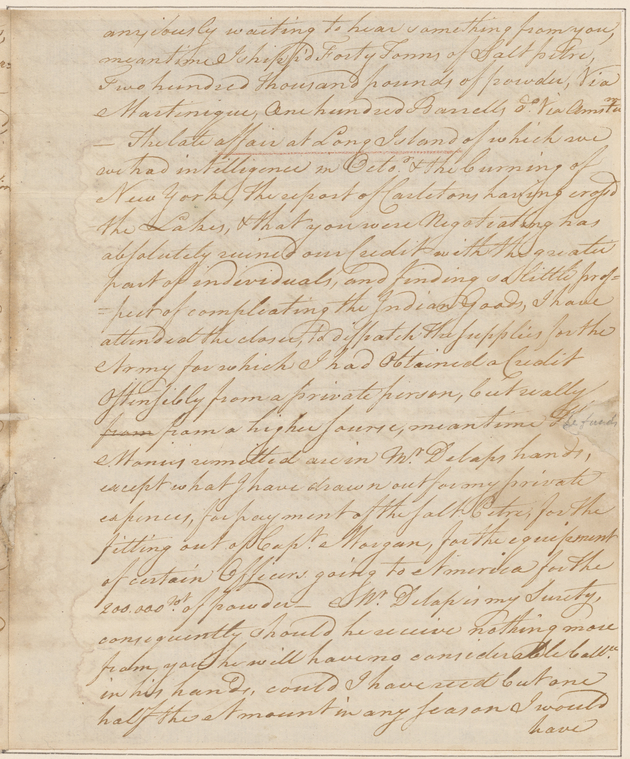 anxiously waiting to hear something from you,
meantime I shipp'd Forty Tonns of Salt petre,
Two hundred thousand pounds of powder, Via
Martinique, One hundred Barrells do. Via Amstm
— The late affair at Long Island of which we
we had intelligence in Octor. & the burning of
New York, the report of Carletons having cross'd
the Lakes, & that you were Negotiating has
absolutely ruined our Credit with the greater
part of individuals, and finding so little pros=
=pect of compleating the Indian Goods, I have
attended the closer, to dispatch the supplies for the
Army for which I had obtained a Credit
Ostensibly from a private person, but really
from from a higher source, meantime The funds
Monies remitted are in Mr. Delaps hands,
except what I have drawn out for my private
expences, for payment of the Salt Petre, for the
fitting out of Capt. Morgan, for the equipment
of certain Officers going to America & for the
200.000 wt. of powder — Mr. Delap is my Surety,
consequently should he receive nothing more
from you he will have no considerable ballce.
in his hands, could I have recd but one
half the Amount in any season I would
have